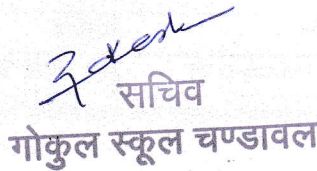 सचिव
गोकुल स्कूल चण्डावल